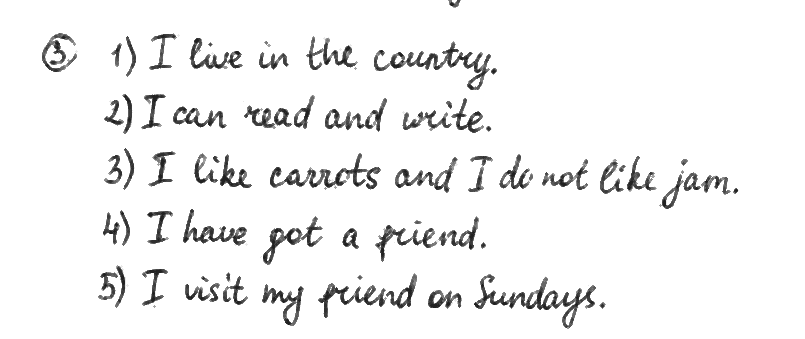 ③ 1) I live in the country.
2) I can read and write.
3) I like carrots and I do not like jam.
4) I have got a friend.
5) I visit my friend on Sundays.